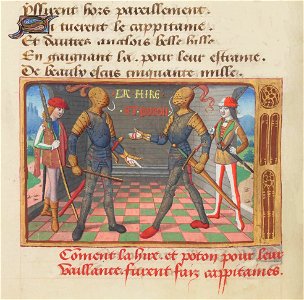 yssurent hors pareillement.
Si tuerent le cappitaine
Et d'autres anglois belle bille
En gaignant la pour leur estraine
De beaulx escus cinquante mille.
LA HIRE
ET POTON
Coment la hire et poton pour leur
vaillance furent faiz cappitaines.